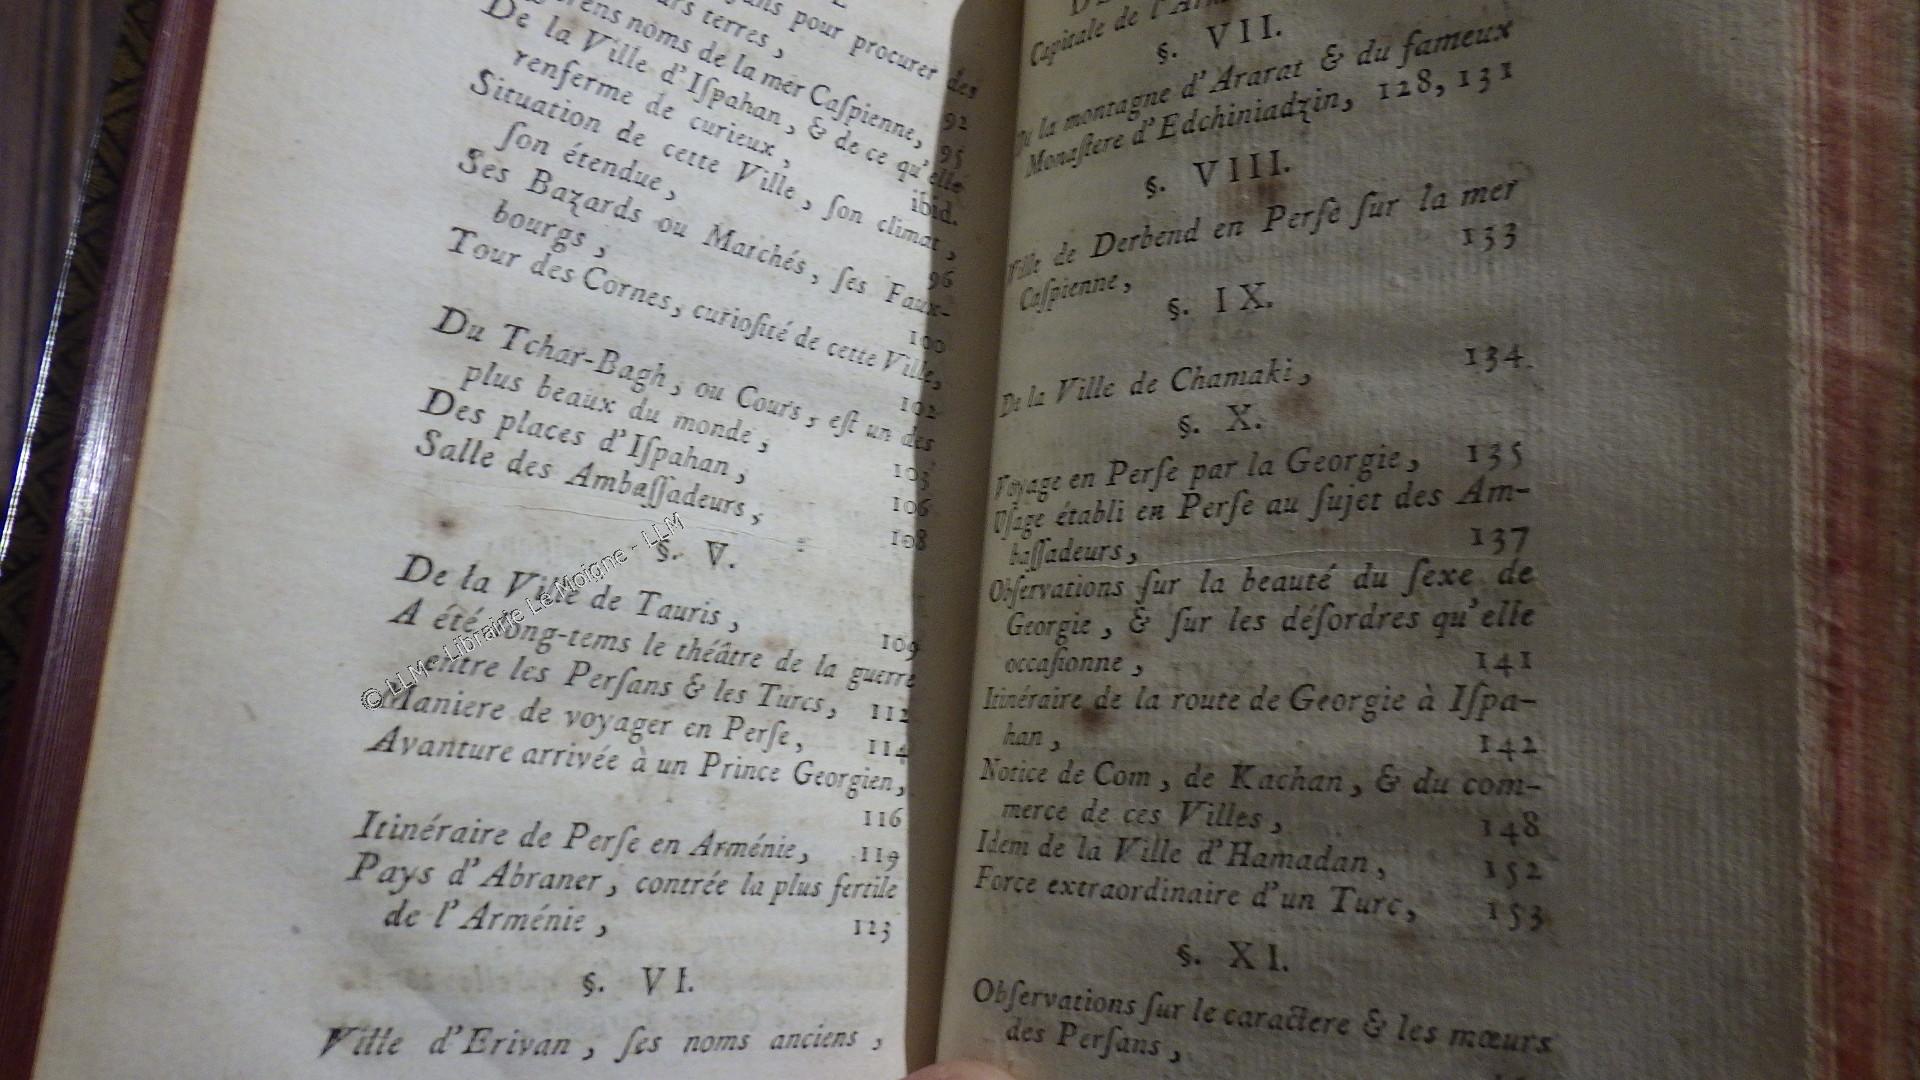 pour procurer des
terres,
noms de la mer Caſpienne, 92
De la Ville d'Iſpahan, & de ce qu'elle 95
renferme de curieux, ibid.
Situation de cette Ville, ſon climat,
ſon étendue, 96
Ses Bazards ou Marchés, ſes Faux-
bourgs, 100
Tour des Cornes, curioſité de cette Ville,
102
Du Tchar-Bagh, ou Cours, eſt un des
plus beaux du monde, 103
Des places d'Iſpahan, 106
Salle des Ambaſſadeurs, 108
§. V.
De la Ville de Tauris, 109
A été long-tems le théâtre de la guerre
entre les Perſans & les Turcs, 112
Maniere de voyager en Perſe, 114
Avanture arrivée à un Prince Georgien,
116
Itinéraire de Perſe en Arménie, 119
Pays d'Abraner, contrée la plus fertile
de l'Arménie, 123
§. VI.
Ville d'Erivan, ſes noms anciens,
Capitale de
§. VII.
De la montagne d'Ararat & du fameux
Monaſtere d'Edchiniadzin, 128, 131
§. VIII.
Ville de Derbend en Perſe ſur la mer
Caſpienne, 133
§. IX.
De la Ville de Chamaki, 134.
§. X.
Voyage en Perſe par la Georgie, 135
Uſage établi en Perſe au ſujet des Am-
baſſadeurs, 137
Obſervations ſur la beauté du ſexe de
Georgie, & ſur les déſordres qu'elle
occaſionne, 141
Itinéraire de la route de Georgie à Iſpa-
han, 142
Notice de Com, de Kachan, & du com-
merce de ces Villes, 148
Idem de la Ville d'Hamadan, 152
Force extraordinaire d'un Turc, 153
§. XI.
Obſervations ſur le caractere & les mœurs
des Perſans,
© LLM - Librairie Le Moigne - LLM